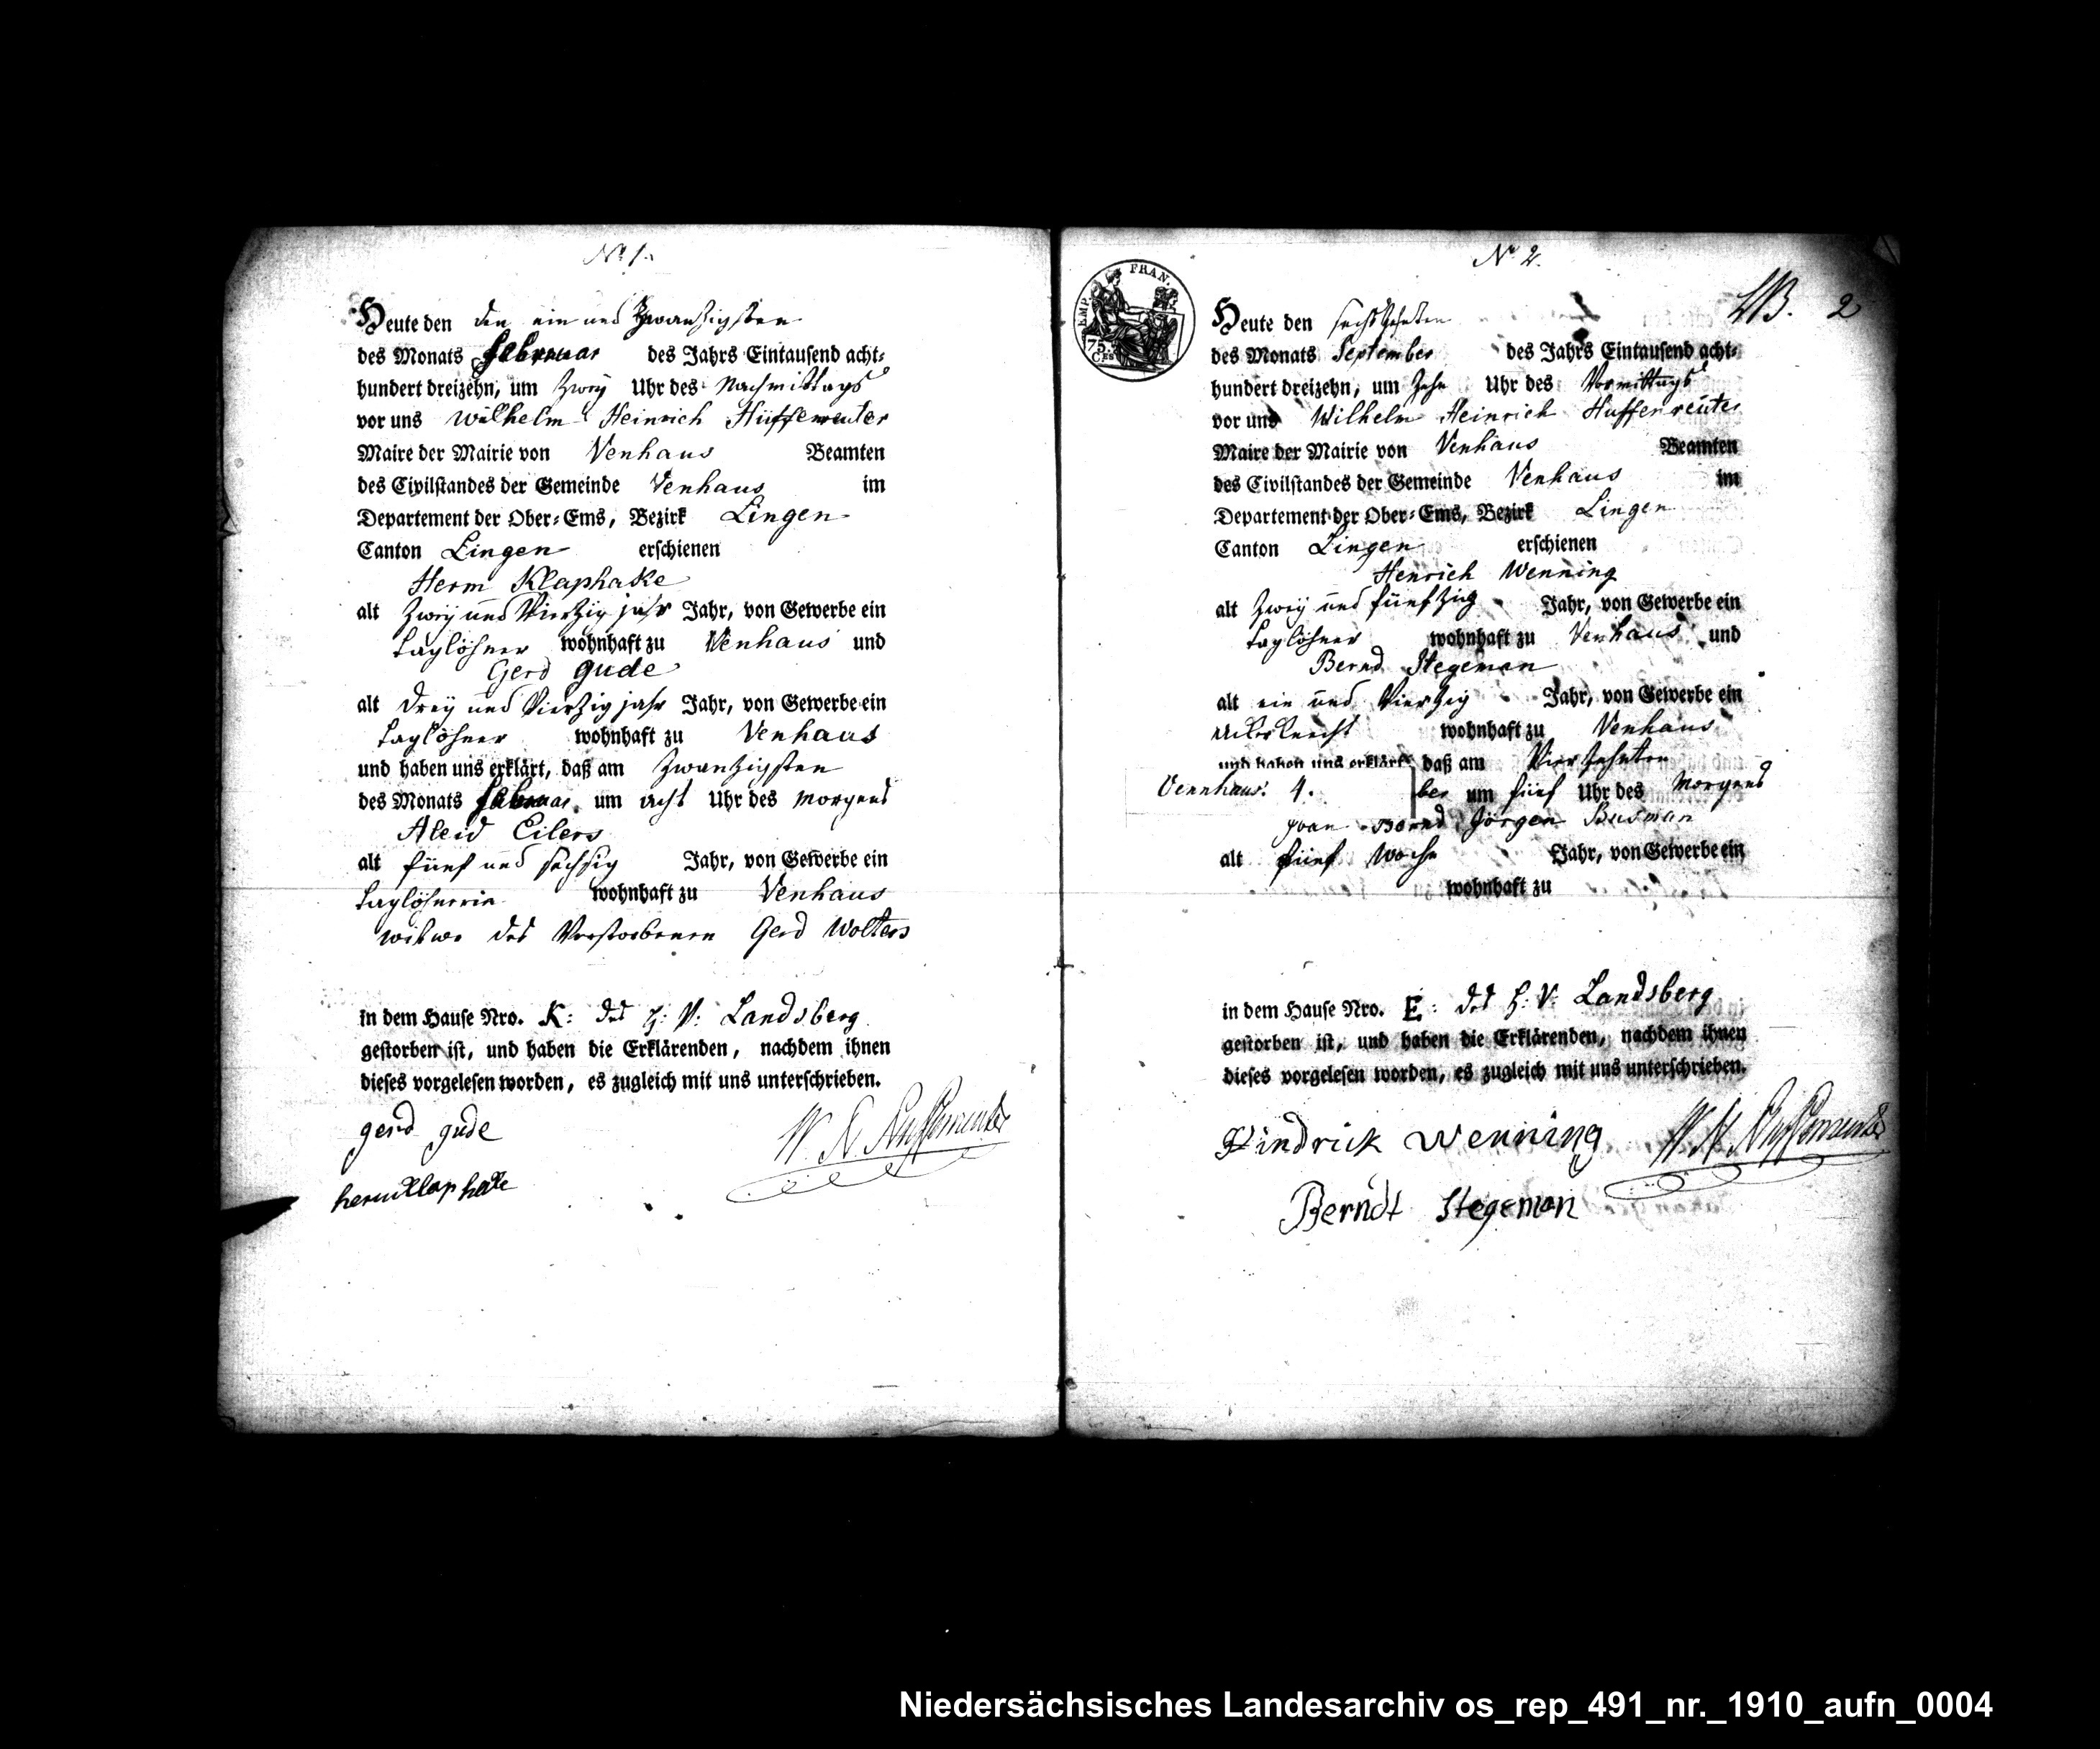 No 1.
Heute den den ein und Zwanzigsten
des Monats februar des Jahrs Eintausend acht-
hundert dreizehn, um Zwey Uhr des Nachmittags
vor uns Wilhelm Heinrich Hüffenreuter
Maire der Mairie von Venhaus Beamten
des Civilstandes der Gemeinde Venhaus im
Departement der Ober-Ems, Bezirk Lingen
Canton Lingen erschienen
Herm Klaphake
alt Zwey und Vierzig jahr Jahr, von Gewerbe ein
taglöhner wohnhaft zu Venhaus und
Gerd Gude
alt Drey und Vierzig jahr Jahr, von Gewerbe ein
taglöhner wohnhaft zu Venhaus
und haben uns erklärt, daß am Zwanzigsten
des Monats februar um acht Uhr des Morgens
Aleid Eilers
alt fünf und sechsig Jahr, von Gewerbe ein
taglöhnerin wohnhaft zu Venhaus
witwe des Verstorbenen Gerd Wolters
in dem Hause Nro. K: des H: V: Landsberg
gestorben ist, und haben die Erklärenden, nachdem ihnen
dieses vorgelesen worden, es zugleich mit uns unterschrieben.
gerd gude
W. H. Hüffenreuter
hermklaphake
No 2.
EMP. FRAN.
75. CES
2
Heute den sechszehnten
des Monats September des Jahrs Eintausend acht-
hundert dreizehn, um Zehn Uhr des Vormittags
vor uns Wilhelm Heinrich Huffenreuter
Maire der Mairie von Venhaus Beamten
des Civilstandes der Gemeinde Venhaus im
Departement der Ober-Ems, Bezirk Lingen
Canton Lingen erschienen
Henrich Wenning
alt Zwey und fünfzig Jahr, von Gewerbe ein
taglöhner wohnhaft zu Venhaus und
Bernd Stegeman
alt ein und Vierzig Jahr, von Gewerbe ein
Ackerknecht wohnhaft zu Venhaus
und haben uns erklärt daß am Vierzehnten
Vennhaus. 4. ber um fünf Uhr des Morgens
Joan Bernd Jörgen Busman
alt fünf Woche Jahr, von Gewerbe ein
wohnhaft zu
in dem Hause Nro. E: des H: V: Landsberg
gestorben ist, und haben die Erklärenden, nachdem ihnen
dieses vorgelesen worden, es zugleich mit uns unterschrieben.
Hindrick Wenning W. H. Hüffenreuter
Berndt Stegeman
Niedersächsisches Landesarchiv os_rep_491_nr._1910_aufn_0004